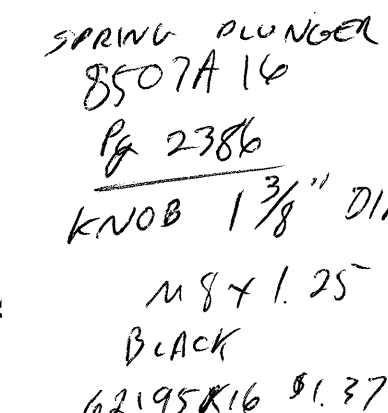 SPRING PLUNGER
8507A16
Pg 2386
KNOB 1 3/8" DIA
M8 x 1.25
BLACK
62195K16 $1.37